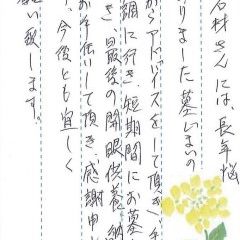 石材さんには、長年悩
りました墓じまいの
からアドバイスをして頂き、手
調に行き、短期間にお墓
き、最後の閉眼供養、納
お手伝いして頂き、感謝申
、今後とも宜しく
願い致します。